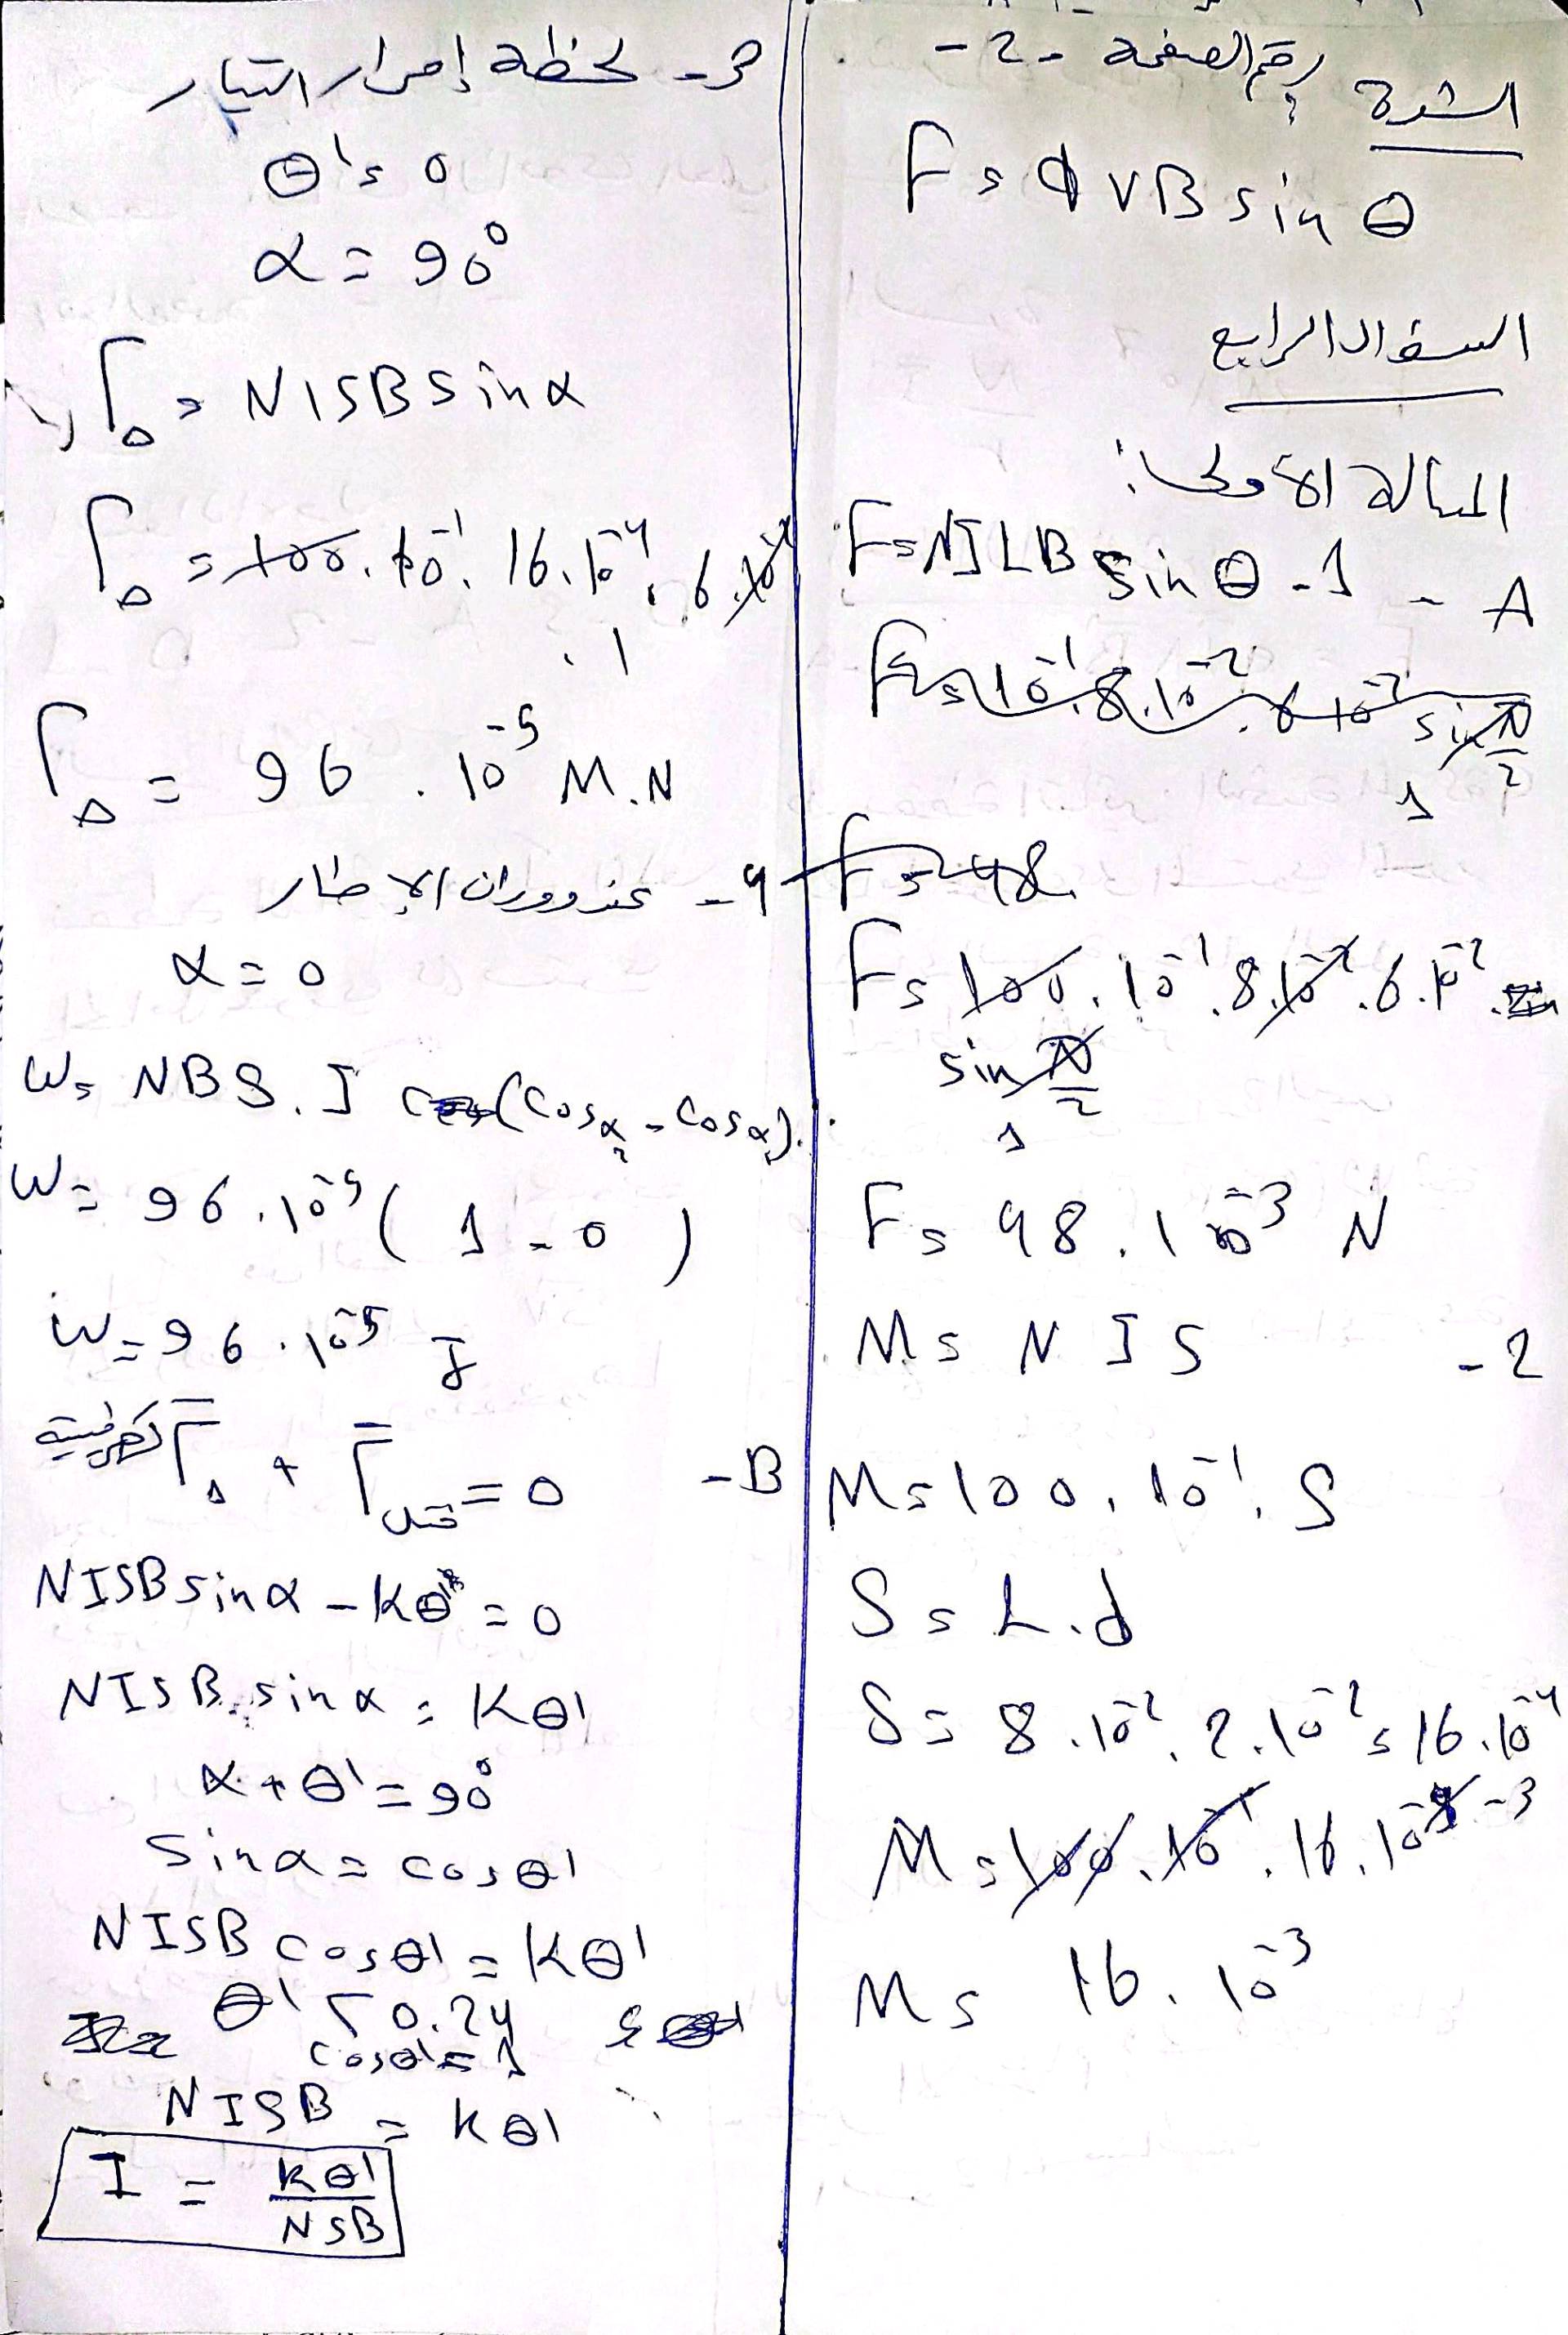 رقم الصفحة -2-
الشدة
F = qVB sin θ
السؤال الرابع
المسألة الأولى:
A - 1- F = NILB sin θ
F = 10^-1 . 8.10^-2 . 6 10^-2 sin π/2
1
F = 48
F = 100 . 10^-1 . 8.10^-2 . 6.10^-2 .
sin π/2
1
F = 48 . 10^-3 N
2- M = N I S
M = 100 . 10^-1 . S
S = L.d
S = 8 . 10^-2 . 2.10^-2 = 16.10^-4
M = 100 . 10^-1 . 16 . 10^-3
M = 16 . 10^-3
3- لحظة إمرار التيار
θ' = 0
α = 90°
Γ_Δ = NISB sin α
Γ_Δ = 100 . 10^-1 . 16 . 10^-4 . 6.10^-2
. 1
Γ_Δ = 96 . 10^-5 M.N
4- عند دوران الإطار
α = 0
W = NBS . I (cos α2 - cos α1)
W = 96 . 10^-5 ( 1 - 0 )
W = 96 . 10^-5 J
B- Γ_Δ كهرطيسية + Γ فتل = 0
NISB sin α - kθ' = 0
NISB sin α = kθ'
α + θ' = 90°
sin α = cos θ'
NISB cos θ' = kθ'
θ' < 0.24
cos θ' = 1
NISB = kθ'
I = kθ'/NSB